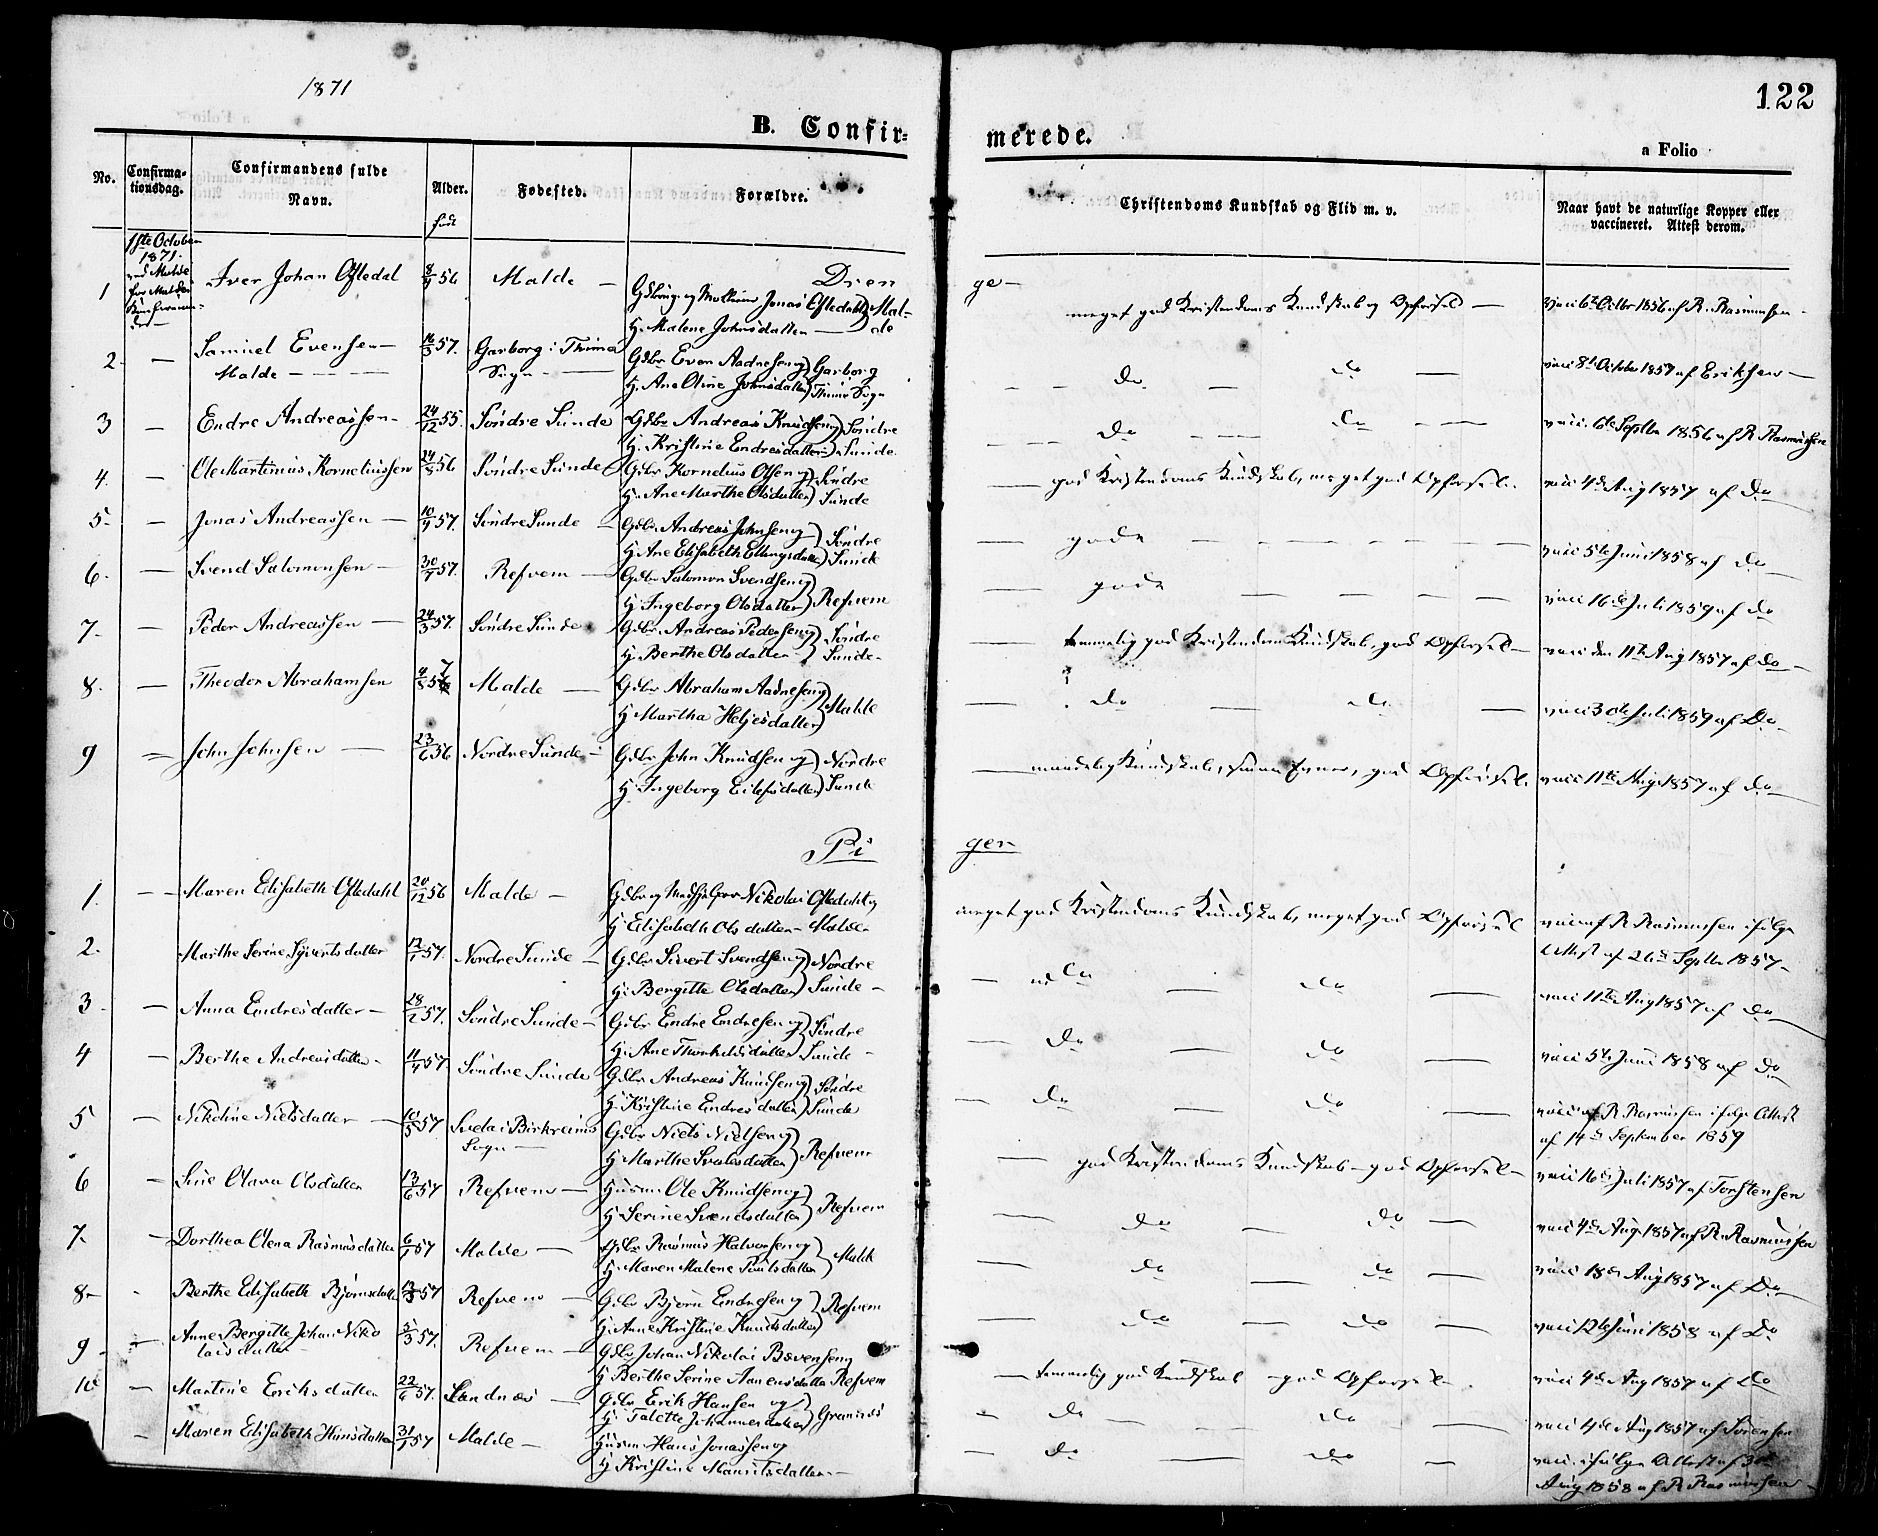 1871
122
B. Confirmerede.
a Folio
No.
Confirmationsdag.
Confirmandens fulde Navn.
Alder.
født
Fødested.
Forældre.
Christendoms Kundskab og Flid m. v.
Naar havt de naturlige Kopper eller vaccineret. Attest derom.
1ste October
1871.
Drenge
1 Iver Johan Ofstedal 8/4 56 Malde Jonas Ofstedahl Malde
H. Malene Johnsdatter
meget god Kristendoms Kundskab og Opførsel vacc 6te Octbr 1856 af R. Rasmussen
2 Samuel Evensen 16/3 57. Garborg i Thime Gdbr Even Aadnesen og Garborg
Malde Sogn H. Ane Oline Johnsdatter Thime Sogn
do do vacc 8de October 1857 af Eriksen
3 Endre Andreassen 24/12 55. Søndre Sunde Gdbr Andreas Knudsen og Søndre
H. Kristine Endresdatter Sunde
do do vacc. 6te Septbr 1856 af R. Rasmussen
4. Ole Martinius Korneliussen 24/5 56 Søndre Sunde Gdbr Kornelius Olsen og Søndre
H. Ane Marthe Olsdatter Sunde
god Kristendoms Kundskab, meget god Opførsel. vacc 4de Aug 1857 af do
5 Jonas Andreassen 10/4 57. Søndre Sunde Gdbr. Andreas Johnsen og Søndre
H. Ane Elisabeth Ellingsdatter Sunde
gode vacc 5te Juni 1858 af do
6. Svend Salomonsen 30/7 57. Refvem Gdbr Salomon Svendsen og
H. Ingeborg Olsdatter Refvem
gode vacc 16de Juli 1859 af do
7 Peder Andreassen 24/3 57. Søndre Sunde Gdbr. Andreas Pedersen og Søndre
H. Berthe Olsdatter Sunde
temmelig god Kristendoms Kundskab, god Opførsel vacc den 11te Aug 1857 af do
8. Theodor Abrahamsen Malde Gdbr Abraham Aadnesen og
H. Martha Heljesdatter Malde
do do vacc 3de Juli 1859 af do
9 John Johnsen 23/6 56 Nordre Sunde Gdbr John Knudsen og Nordre
H. Ingeborg Eilefsdatter Sunde
Kundskab, god Opførsel. vacc 11te Aug 1857 af do
Piger
1. Maren Elisabeth Ofstedahl 20/12 56 Malde Nikolai Ofstedahl og
H. Elisabeth Olsdatter Malde
meget god Kristendoms Kundskab, meget god Opførsel vacc af R. Rasmussen ifølge
Attest af 26de Septbr 1857
2. Marthe Serine Syvertsdatter 12/1 57. Nordre Sunde Gdbr Sivert Svendsen og Nordre
H. Bergitte Olsdatter Sunde
do do vacc 11te Aug 1857 af do
3 Anna Endresdatter 28/2 57. Søndre Sunde Gdbr Endre Endresen og Søndre
H. Ane Thorkildsdatter Sunde
do do vacc 5te Juni 1858 af do
4 Berthe Andreasdatter 11/4 57 Søndre Sunde Gdbr Andreas Knudsen og Søndre
H. Kristine Endresdatter Sunde
do do vacc af R. Rasmussen ifølge Attest
af 14de September 1859
5 Nikoline Nielsdatter 10/5 57 Svela i Birkreims Gdbr Niels Nielsen og
Sogn H. Marthe Refvem
god Kristendoms Kundskab god Opførsel vacc 16de Juli 1857 af Torstensen
6 Sine Olava Olsdatter 13/6 57 Refvem Husm. Ole Knudsen og
H. Serine Svendsdatter Refvem
do do vacc 4de Aug 1857 af R. Rasmussen
7. Dorthea Olena Rasmusdatter 6/1 57 Malde Gdbr Rasmus Halvorsen og
H. Maren Malene Paulsdatter Malde
do do vacc 18de Aug 1857 af do
8 Berthe Elisabeth Bjørnsdatter 13/3 57 Refvem Gdbr Bjørn Endresen og Refvem
H. Anne Kristine Knudsdatter
do do vacc 12te Juni 1858 af do
9 Anne Bergitte Johan Niko 5/3 57. Refvem Gdbr Johan Nikolai
laisdatter H. Berthe Serine Refvem
temmelig god Kundskab god Opførsel vacc 4de Aug 1857 af do
10 Martine Eriksdatter 22/6 57. Sandnæs Gdbr Erik Hansen og
H. Talette Johannesdatter
do do vacc 4de Aug 1857 af Sørensen
Maren Elisabeth Hansdatter 31/1 57 Malde Husm Hans Jonassen og
H. Kristine Mauritsdatter
do do vacc. ifølge Attest af
Aug 1858 af R. Rasmussen